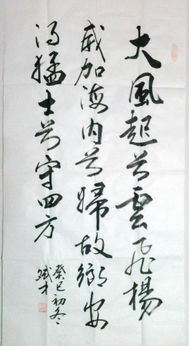 大風起兮雲飛楊
威加海内兮歸故鄉安
得猛士兮守四方
癸巳初冬
斌才